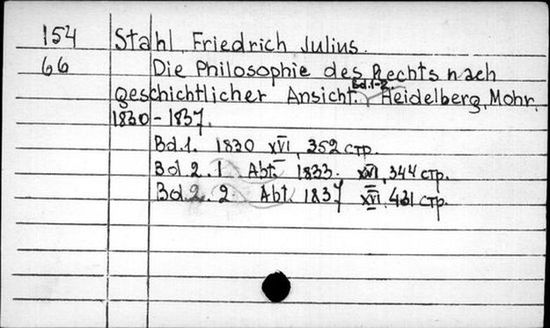 154 Stahl, Friedrich Julius.
66 Die Philosophie des Rechts nach
geschichtlicher Ansicht. Bd.1-2. Heidelberg, Mohr,
1830-1837.
Bd.1. 1830 XVI, 352 стр.
Bd 2. 1. Abt. 1833. XVI, 344 стр.
Bd.2. 2. Abt. 1837 XVI, 431 стр.